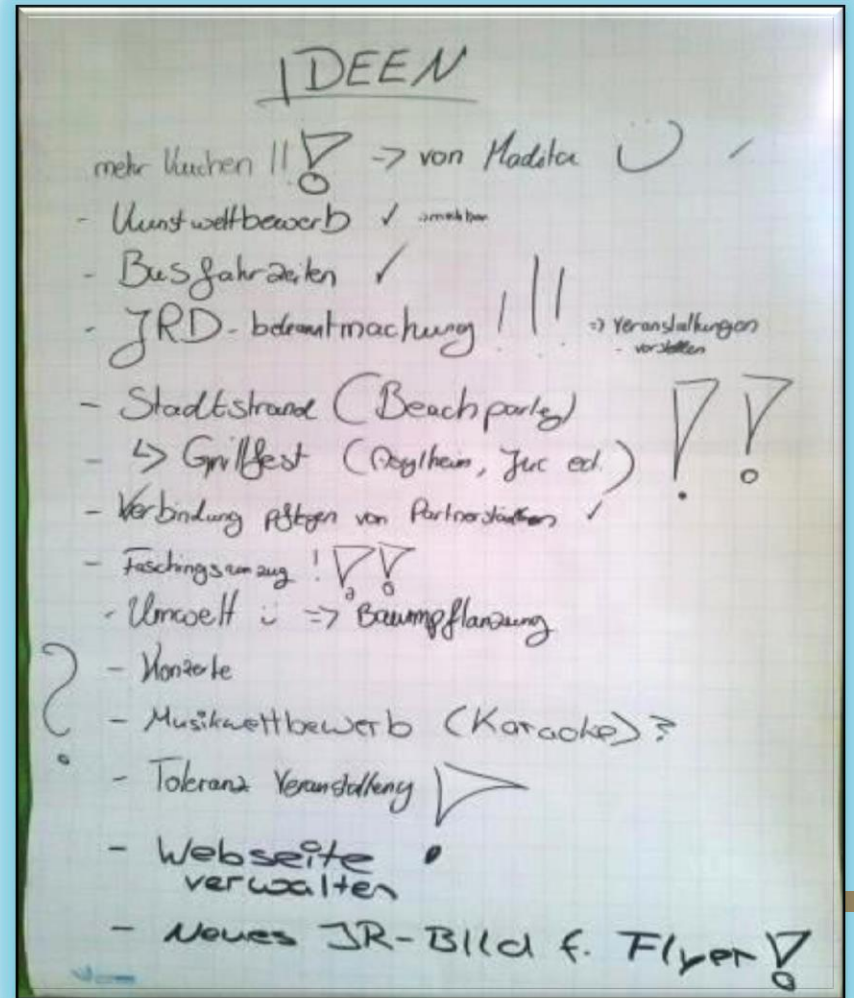 IDEEN
mehr Kuchen !!! -> von Madita
- Kunstwettbewerb ✓
- Busfahrzeiten ✓
- JRD-bekanntmachung !!! => Veranstaltungen
- vorstellen
- Stadtstrand (Beachparty)
- ↳ Grillfest ( , Juc ) !!
- Verbindung von Partnerstädten ✓
- Faschingsumzug !!!
- Umwelt => Baumpflanzung
? - Konzerte
- Musikwettbewerb (Karaoke)?
- Toleranz Veranstaltung !
- Webseite
verwalten
- Neues JR-Bild f. Flyer!